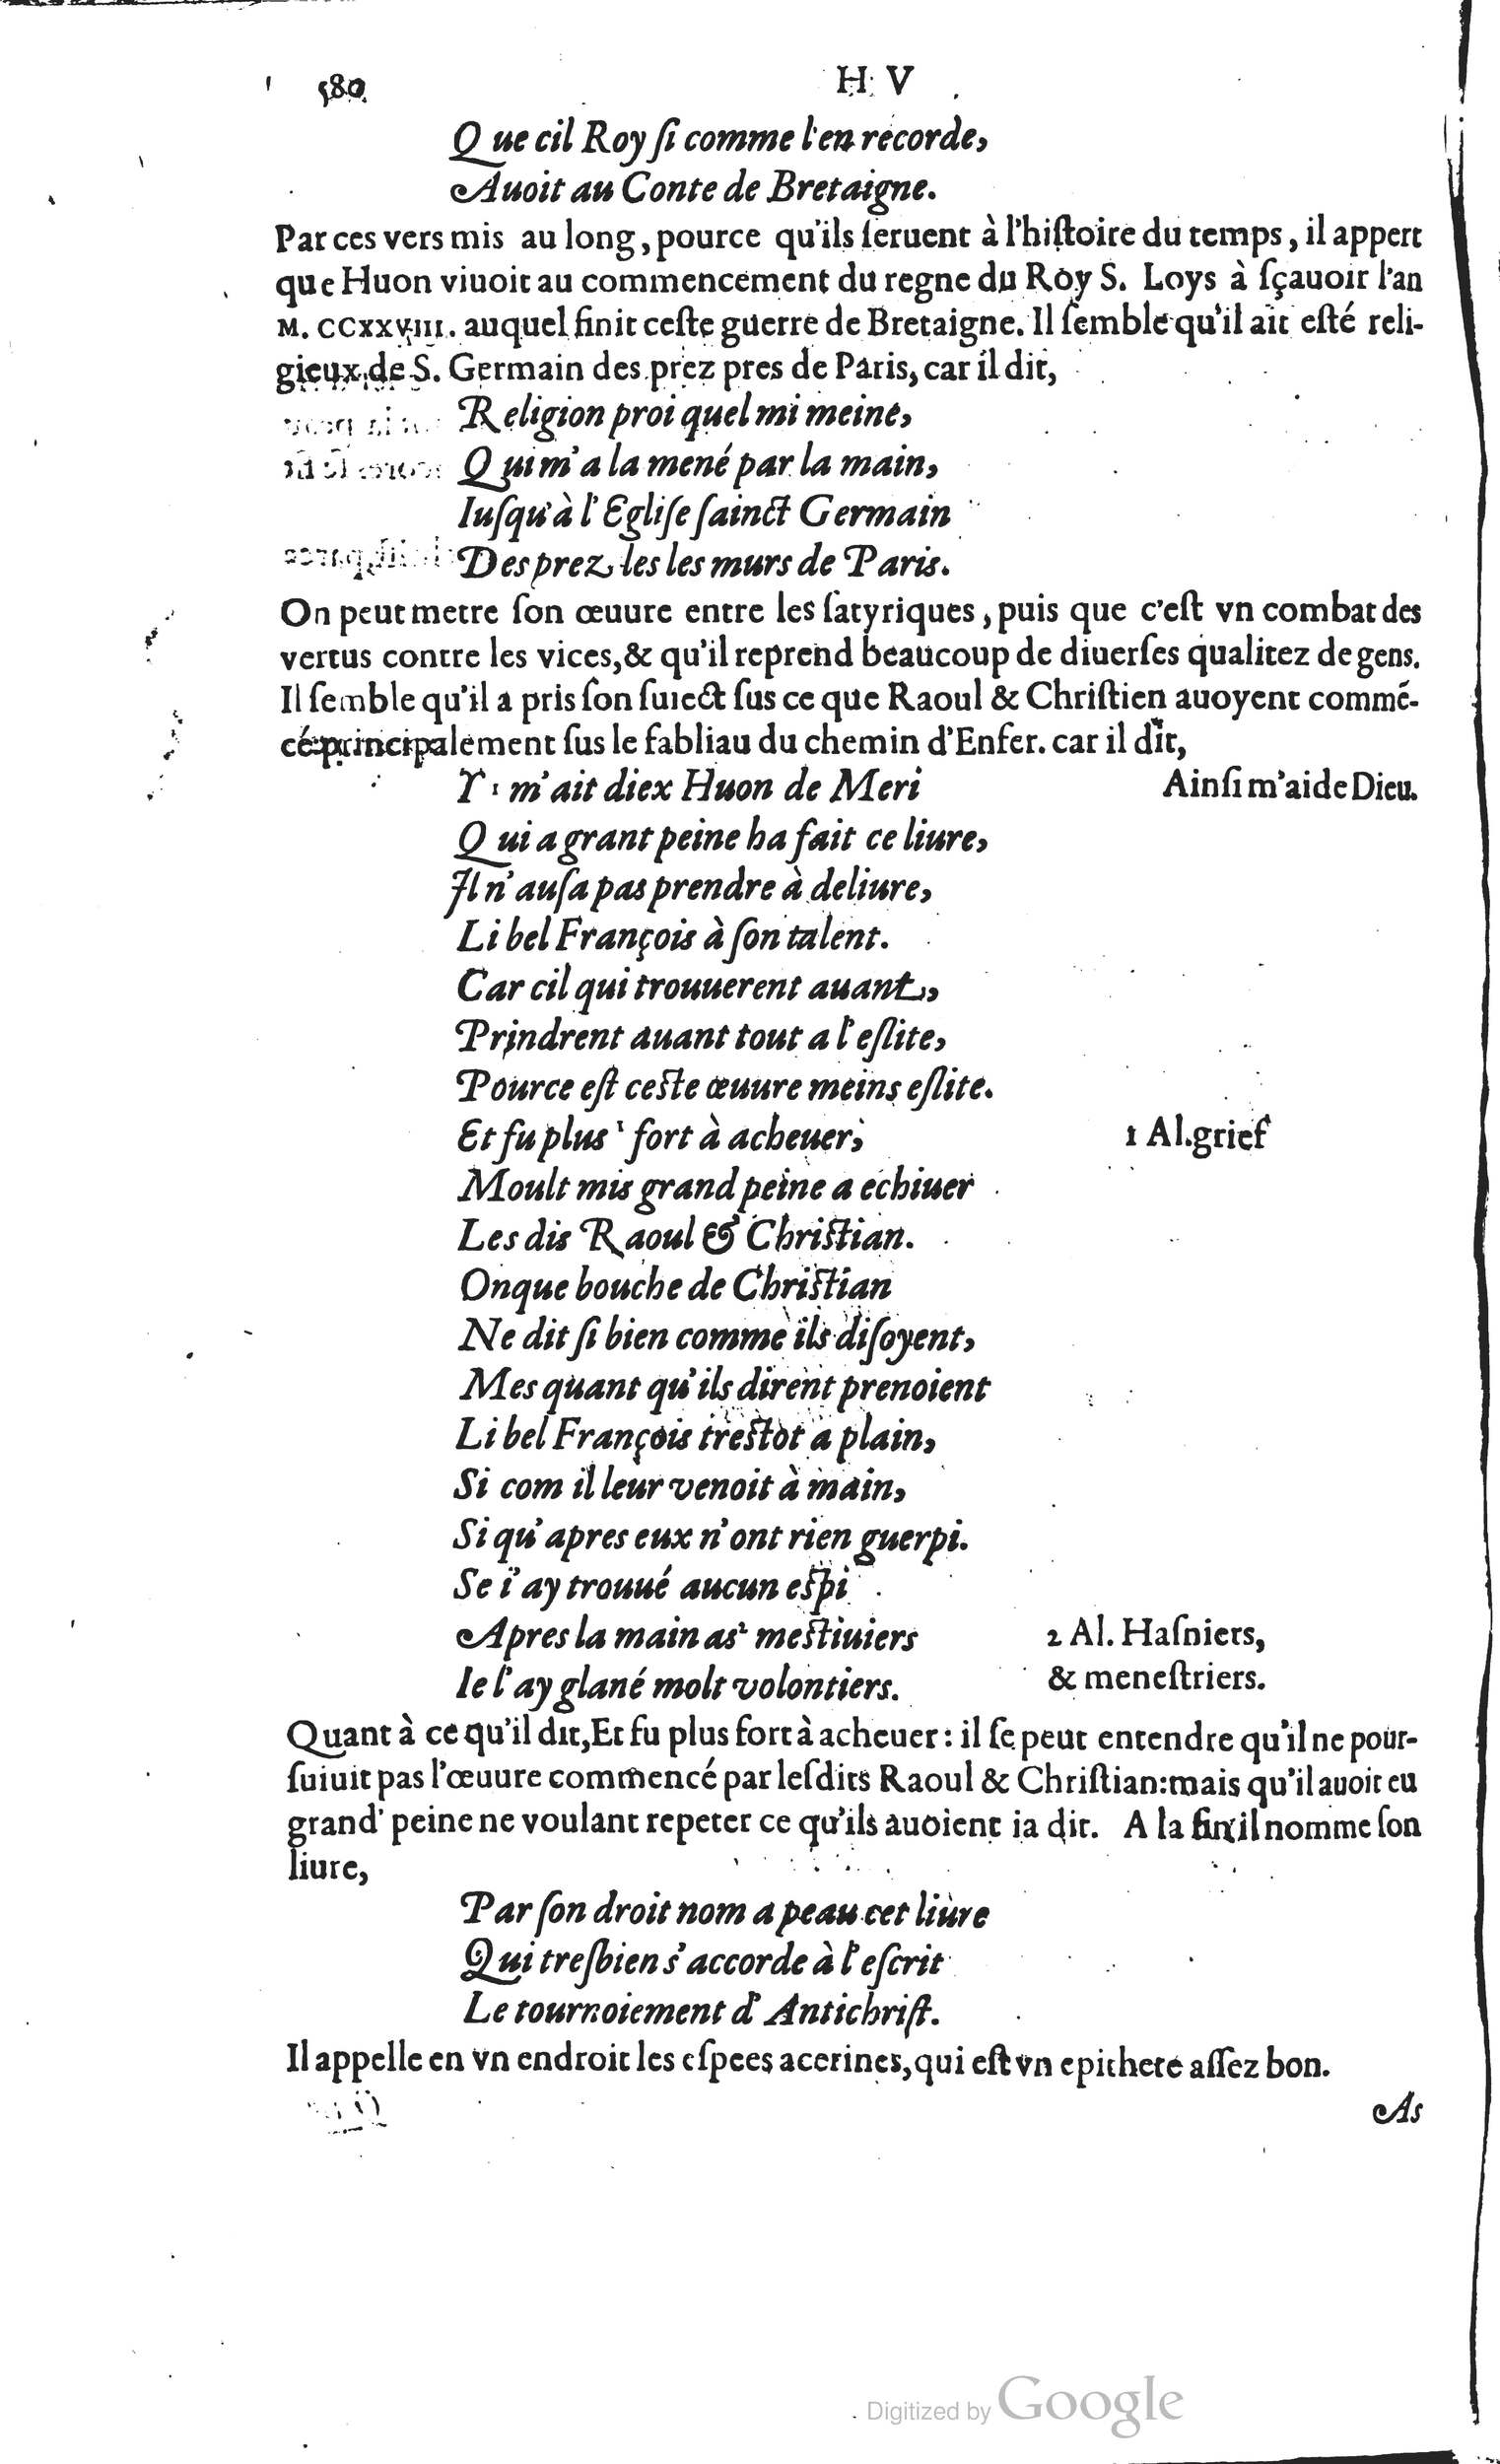 580 H V
Que cil Roy ſi comme l'en recorde,
Auoit au Conte de Bretaigne.
Par ces vers mis au long, pource qu'ils ſeruent à l'hiſtoire du temps, il appert
que Huon viuoit au commencement du regne du Roy S. Loys à ſçauoir l'an
M. CCXXVIII. auquel finit ceſte guerre de Bretaigne. Il ſemble qu'il ait eſté reli-
gieux de S. Germain des prez pres de Paris, car il dit,
Religion proi quel mi meine,
Qui m'a la mené par la main,
Iuſqu'à l'Egliſe ſainct Germain
Des prez les les murs de Paris.
On peut metre ſon œuure entre les ſatyriques, puis que c'eſt vn combat des
vertus contre les vices, & qu'il reprend beaucoup de diuerſes qualitez de gens.
Il ſemble qu'il a pris ſon ſuiect ſus ce que Raoul & Chriſtien auoyent commé-
cé principalement ſus le fabliau du chemin d'Enfer. car il dit,
Y: m'ait diex Huon de Meri Ainſi m'aide Dieu.
Qui a grant peine ha fait ce liure,
Il n'auſa pas prendre à deliure,
Li bel François à ſon talent.
Car cil qui trouuerent auant,
Prindrent auant tout a l'eſlite,
Pource eſt ceſte œuure meins eſlite.
Et fu plus ¹ fort à acheuer, 1 Al. grief
Moult mis grand peine a echiuer
Les dis Raoul & Chriſtian.
Onque bouche de Chriſtian
Ne dit ſi bien comme ils diſoyent,
Mes quant qu'ils dirent prenoient
Li bel François treſtot a plain,
Si com il leur venoit à main,
Si qu'apres eux n'ont rien guerpi.
Se i'ay trouué aucun eſpi
Apres la main as² meſtiuiers 2 Al. Haſniers,
Ie l'ay glané molt volontiers. & meneſtriers.
Quant à ce qu'il dit, Et fu plus fort à acheuer: il ſe peut entendre qu'il ne pour-
ſuiuit pas l'œuure commencé par leſdits Raoul & Chriſtian: mais qu'il auoit eu
grand' peine ne voulant repeter ce qu'ils auoient ia dit. A la fin il nomme ſon
liure,
Par ſon droit nom a peau cet liure
Qui treſbien s'accorde à l'eſcrit
Le tournoiement d'Antichriſt.
Il appelle en vn endroit les eſpees acerines, qui eſt vn epithete aſſez bon.
As
Digitized by Google